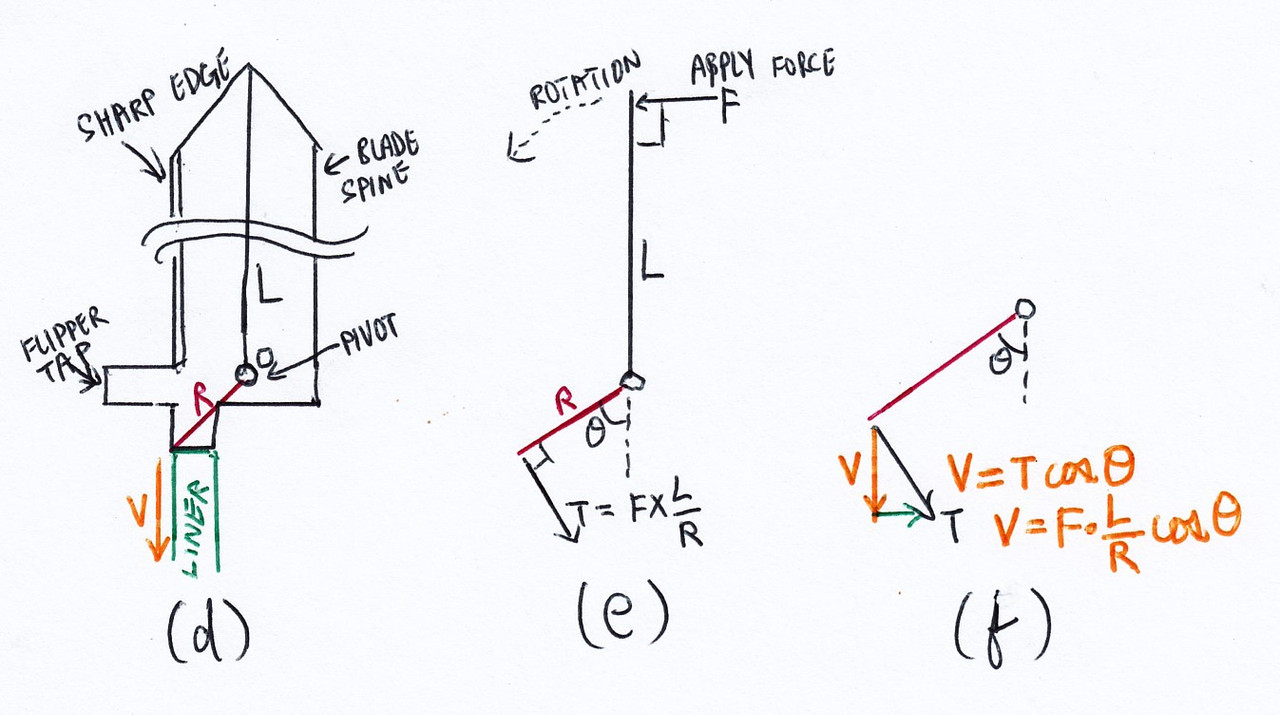 SHARP EDGE
BLADE
SPINE
L
FLIPPER
TAP
O
PIVOT
R
V
LINER
(d)
ROTATION
APPLY FORCE
F
L
R
θ
T = F×L/R
(e)
θ
V
T
V=Tcosθ
V=F·L/R cosθ
(f)